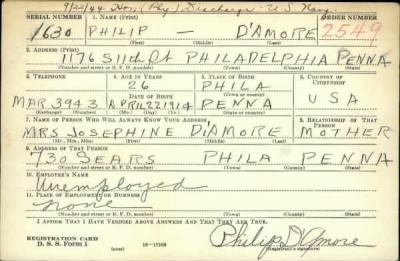 9/22/44 Hon. (Phy.) Discharge - U.S. Navy
SERIAL NUMBER 1. NAME (Print) ORDER NUMBER
1630 PHILIP — D'AMORE 2549
(First) (Middle) (Last)
2. ADDRESS (Print)
1176 S 11th St PHILADELPHIA PENNA
(Number and street or R. F. D. number) (Town) (County) (State)
3. TELEPHONE 4. AGE IN YEARS 5. PLACE OF BIRTH 6. COUNTRY OF CITIZENSHIP
26 PHILA
DATE OF BIRTH (Town or county)
MAR 3943 APRIL 22 1914 PENNA USA
(Exchange) (Number) (Mo.) (Day) (Yr.) (State or country)
7. NAME OF PERSON WHO WILL ALWAYS KNOW YOUR ADDRESS 8. RELATIONSHIP OF THAT PERSON
MRS JOSEPHINE D'AMORE MOTHER
(Mr., Mrs., Miss) (First) (Middle) (Last)
9. ADDRESS OF THAT PERSON
730 SEARS PHILA PENNA
(Number and street or R. F. D. number) (Town) (County) (State)
10. EMPLOYER'S NAME
Unemployed
11. PLACE OF EMPLOYMENT OR BUSINESS
none
(Number and street or R. F. D. number) (Town) (County) (State)
I AFFIRM THAT I HAVE VERIFIED ABOVE ANSWERS AND THAT THEY ARE TRUE.
REGISTRATION CARD
D. S. S. Form 1 16—17105 Philip D'Amore
(Registrant's signature)